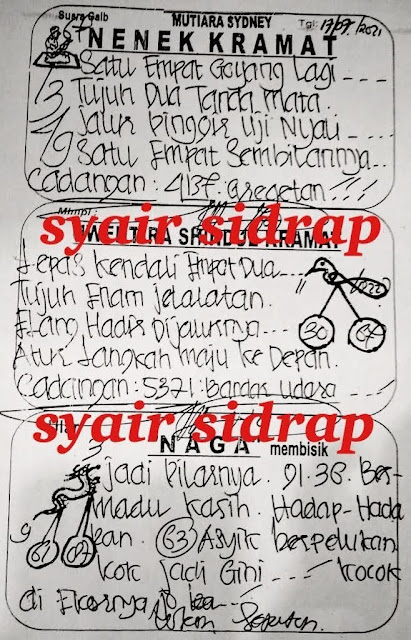 Suara Gaib
MUTIARA SYDNEY
Tgl: 17/09/2021
NENEK KRAMAT
Satu Empat Goyang Lagi ---
3 Tujuh Dua Tanda Mata.
Jalur bingoir Uji Nyali ---
19 Satu Empat Sembilannya...
Cadangan: 4137. gregetan !!!
Mimpi:
syair sidrap
KRAMAT
Lepas Kendali Empat Dua ---
Tujuh Enam jelalatan.
Elang Hadir
Atur Langkah maju ke Depan.
30 07
Cadangan: 5371: bandar udara ---
syair sidrap
NAGA membisik
jadi pilarnya. 91.38. Ber-
madu kasih. Hadap-Hada
pan. 63 Asyik berpelukan
kok jadi Gini --- kocok
di Ekornya